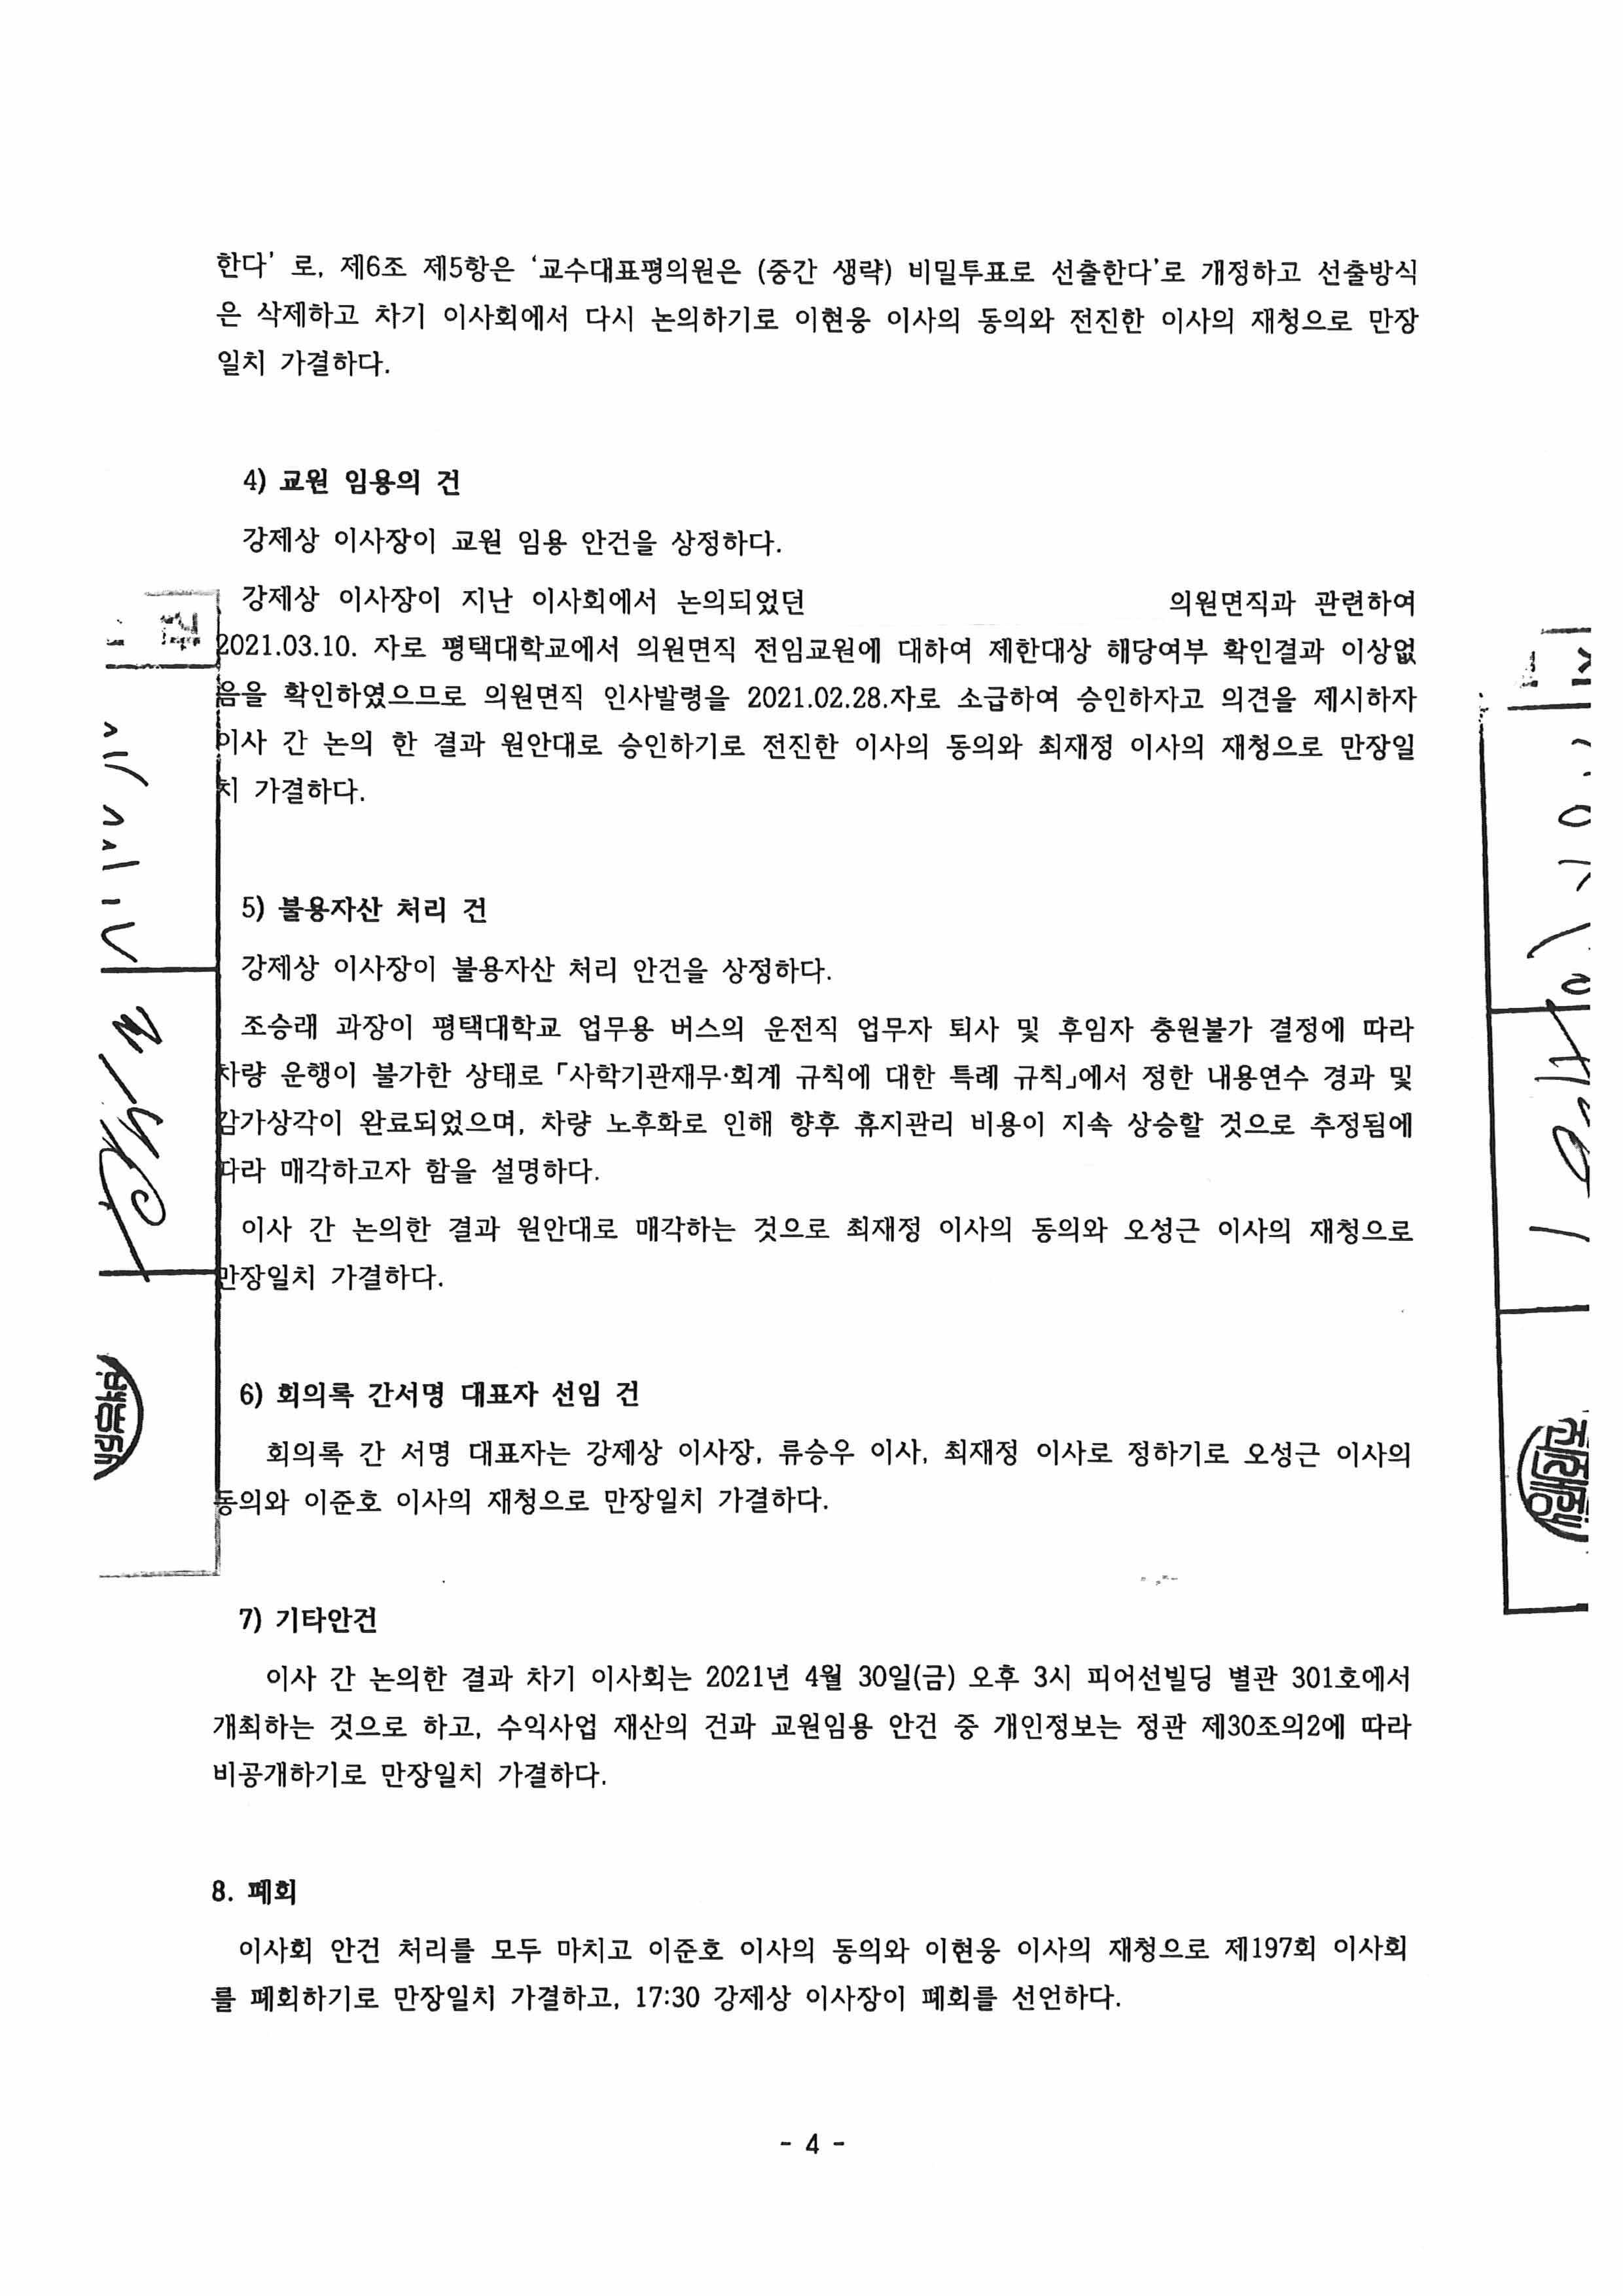 한다' 로, 제6조 제5항은 '교수대표평의원은 (중간 생략) 비밀투표로 선출한다'로 개정하고 선출방식
은 삭제하고 차기 이사회에서 다시 논의하기로 이현웅 이사의 동의와 전진한 이사의 재청으로 만장
일치 가결하다.
4) 교원 임용의 건
강제상 이사장이 교원 임용 안건을 상정하다.
강제상 이사장이 지난 이사회에서 논의되었던 의원면직과 관련하여
2021.03.10. 자로 평택대학교에서 의원면직 전임교원에 대하여 제한대상 해당여부 확인결과 이상없
음을 확인하였으므로 의원면직 인사발령을 2021.02.28.자로 소급하여 승인하자고 의견을 제시하자
이사 간 논의 한 결과 원안대로 승인하기로 전진한 이사의 동의와 최재정 이사의 재청으로 만장일
치 가결하다.
5) 불용자산 처리 건
강제상 이사장이 불용자산 처리 안건을 상정하다.
조승래 과장이 평택대학교 업무용 버스의 운전직 업무자 퇴사 및 후임자 충원불가 결정에 따라
차량 운행이 불가한 상태로 「사학기관재무·회계 규칙에 대한 특례 규칙」에서 정한 내용연수 경과 및
감가상각이 완료되었으며, 차량 노후화로 인해 향후 휴지관리 비용이 지속 상승할 것으로 추정됨에
따라 매각하고자 함을 설명하다.
이사 간 논의한 결과 원안대로 매각하는 것으로 최재정 이사의 동의와 오성근 이사의 재청으로
만장일치 가결하다.
6) 회의록 간서명 대표자 선임 건
회의록 간 서명 대표자는 강제상 이사장, 류승우 이사, 최재정 이사로 정하기로 오성근 이사의
동의와 이준호 이사의 재청으로 만장일치 가결하다.
7) 기타안건
이사 간 논의한 결과 차기 이사회는 2021년 4월 30일(금) 오후 3시 피어선빌딩 별관 301호에서
개최하는 것으로 하고, 수익사업 재산의 건과 교원임용 안건 중 개인정보는 정관 제30조의2에 따라
비공개하기로 만장일치 가결하다.
8. 폐회
이사회 안건 처리를 모두 마치고 이준호 이사의 동의와 이현웅 이사의 재청으로 제197회 이사회
를 폐회하기로 만장일치 가결하고, 17:30 강제상 이사장이 폐회를 선언하다.
- 4 -